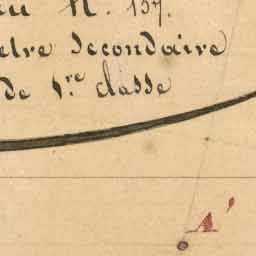 N. 157.
Secondaire
de 1re classe
A'